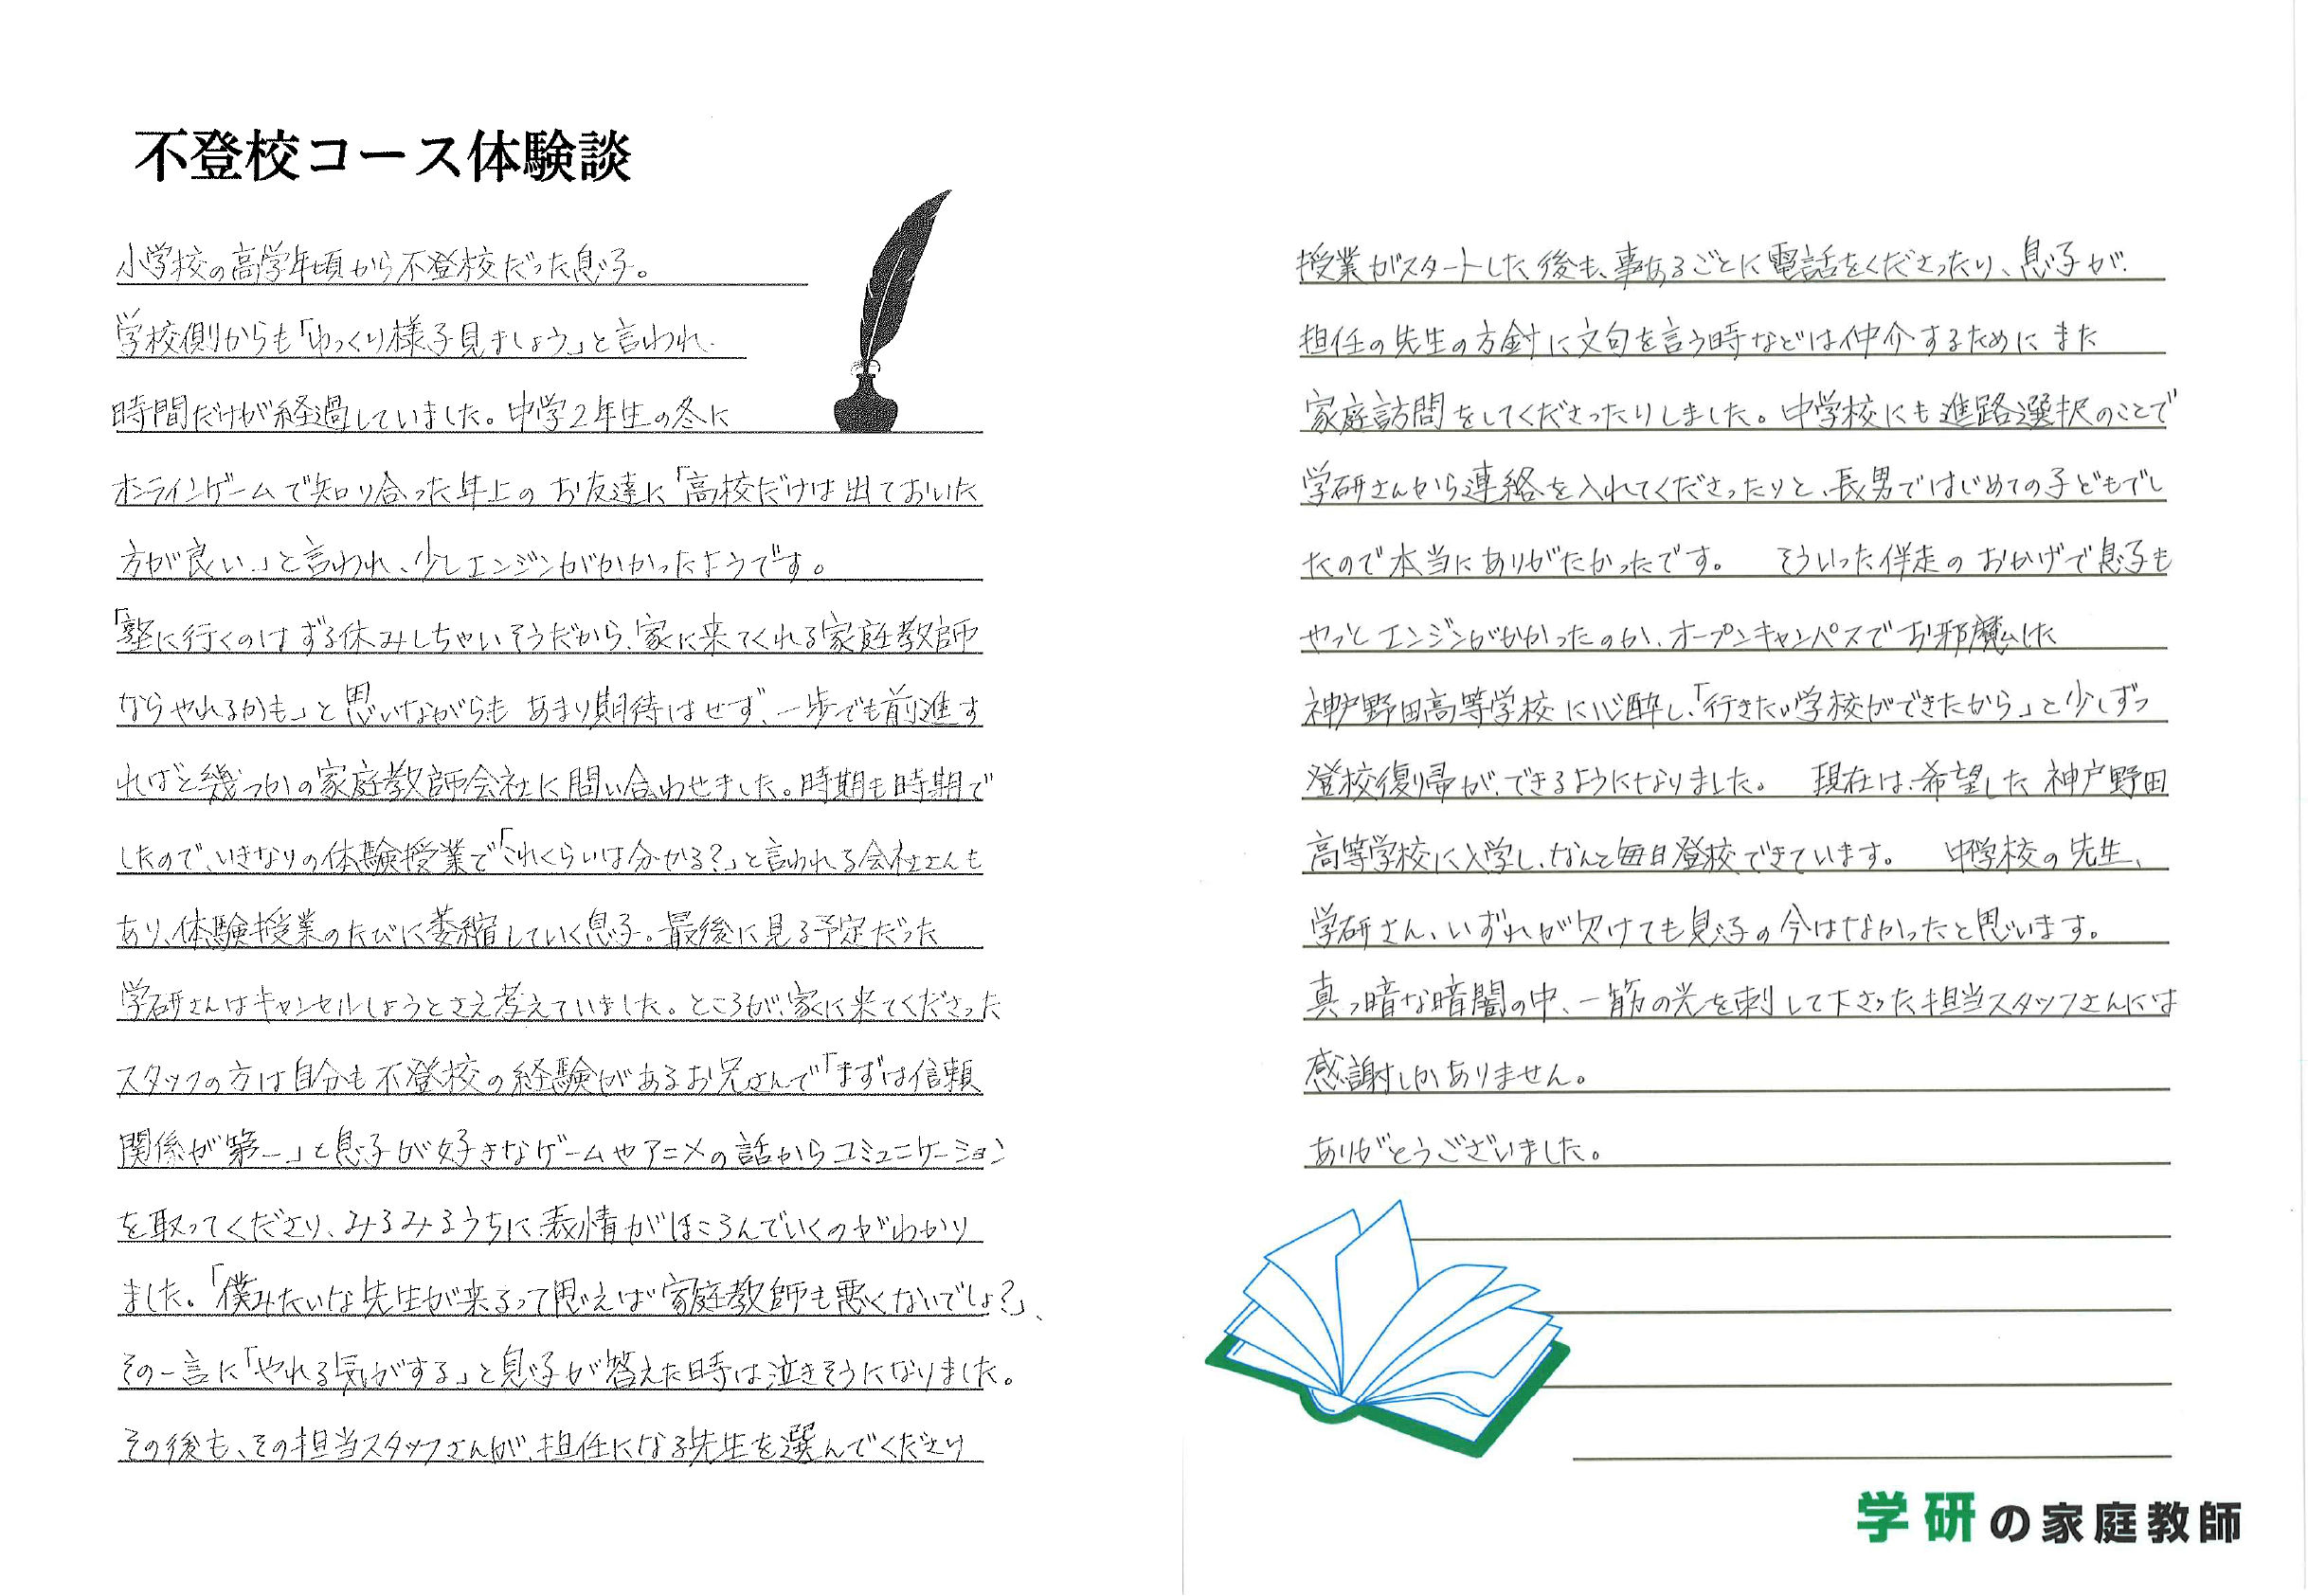 不登校コース体験談
小学校の高学年頃から不登校だった息子。
学校側からも「ゆっくり様子見ましょう」と言われ
時間だけが経過していました。中学2年生の冬に
オンラインゲームで知り合った年上のお友達に「高校だけは出ておいた
方が良い」と言われ、少しエンジンがかかったようです。
「塾に行くのはずる休みしちゃいそうだから、家に来てくれる家庭教師
ならやれるかも」と思いながらも あまり期待はせず、一歩でも前進す
ればと幾つかの家庭教師会社に問い合わせました。時期も時期で
したので、いきなりの体験授業で「これくらいは分かる?」と言われる会社さんも
あり、体験授業のたびに萎縮していく息子。最後に見る予定だった
学研さんはキャンセルしようとさえ考えていました。ところが、家に来てくださった
スタッフの方は自分も不登校の経験があるお兄さんで「まずは信頼
関係が第一」と息子が好きなゲームやアニメの話からコミュニケーション
を取ってくださり、みるみるうちに表情がほころんでいくのがわかり
ました。「僕みたいな先生が来るって思えば家庭教師も悪くないでしょ?」、
その一言に「やれる気がする」と息子が答えた時は泣きそうになりました。
その後も、その担当スタッフさんが、担任になる先生を選んでくださり
授業がスタートした後も、事あるごとに電話をくださったり、息子が
担任の先生の方針に文句を言う時などは仲介するために また
家庭訪問をしてくださったりしました。中学校にも進路選択のことで
学研さんから連絡を入れてくださったりと、長男ではじめての子どもでし
たので本当にありがたかったです。 そういった伴走のおかげで息子も
やっとエンジンがかかったのか、オープンキャンパスでお邪魔した
神戸野田高等学校に心酔し、「行きたい学校ができたから」と少しずつ
登校復帰ができるようになりました。 現在は、希望した神戸野田
高等学校に入学し、なんと毎日登校できています。 中学校の先生、
学研さん、いずれが欠けても息子の今はなかったと思います。
真っ暗な暗闇の中、一筋の光を刺して下さった担当スタッフさんには
感謝しかありません。
ありがとうございました。
学研の家庭教師